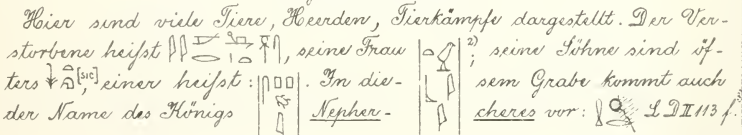 Hier sind viele Tiere, Heerden, Tierkämpfe dargestellt. Der Ver-
storbene heißt , seine Frau ²⁾; seine Söhne sind öf-
ters [SIC], einer heißt: . In die- sem Grabe kommt auch
der Name des Königs Nepher- cheres vor: LD II 113 f.